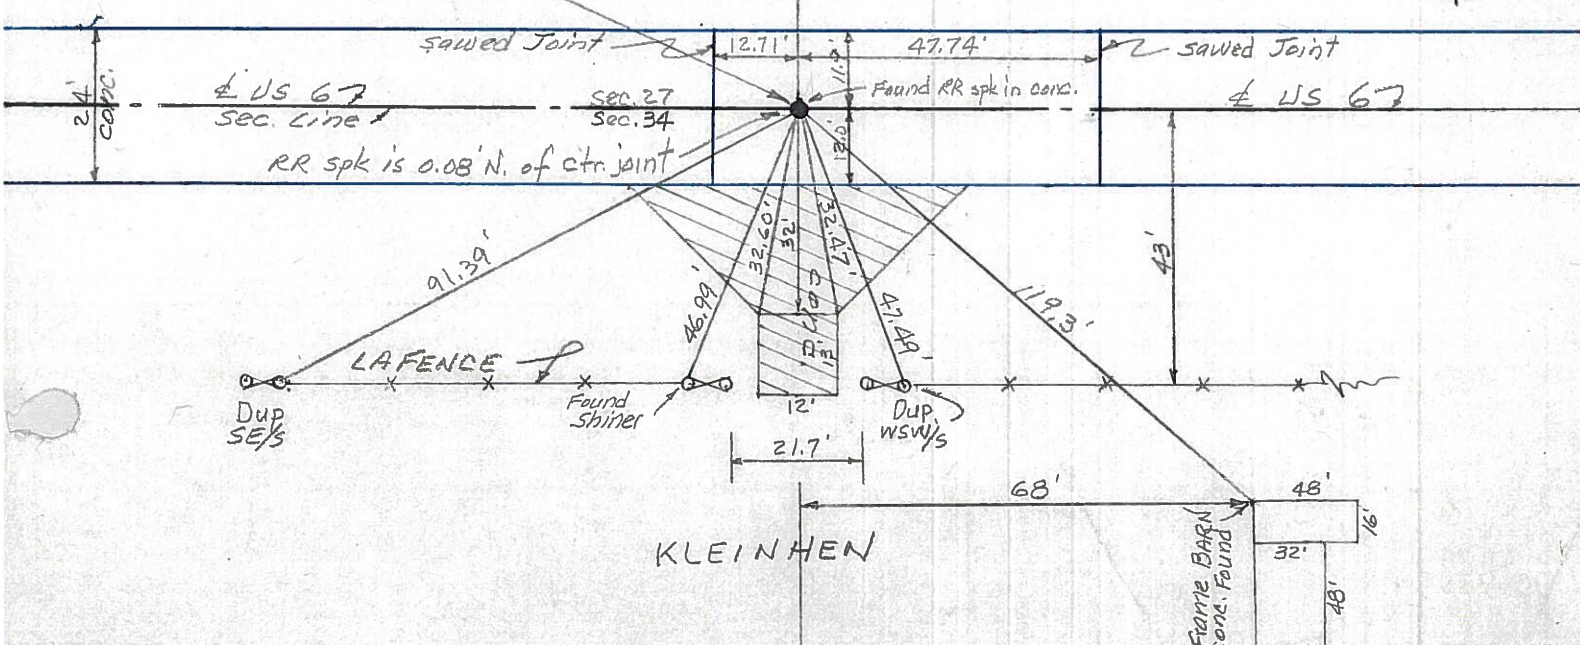 sawed Joint
12.71'
11.9'
47.74'
sawed Joint
24'
conc.
℄ US 6
Sec. Line
Sec. 27
Sec. 34
Found RR spk in conc.
℄ US 6
RR spk is 0.08' N. of ctr. joint
12.0'
91.39'
46.99'
32.60'
32'
32.47'
47.49'
119.3'
43'
LA FENCE
13'
Dup
SE/s
Found
Shiner
12'
Dup
WSW/s
21.7'
68'
48'
16'
32'
48'
Frame BARN
Conc. Found
KLEINHEN